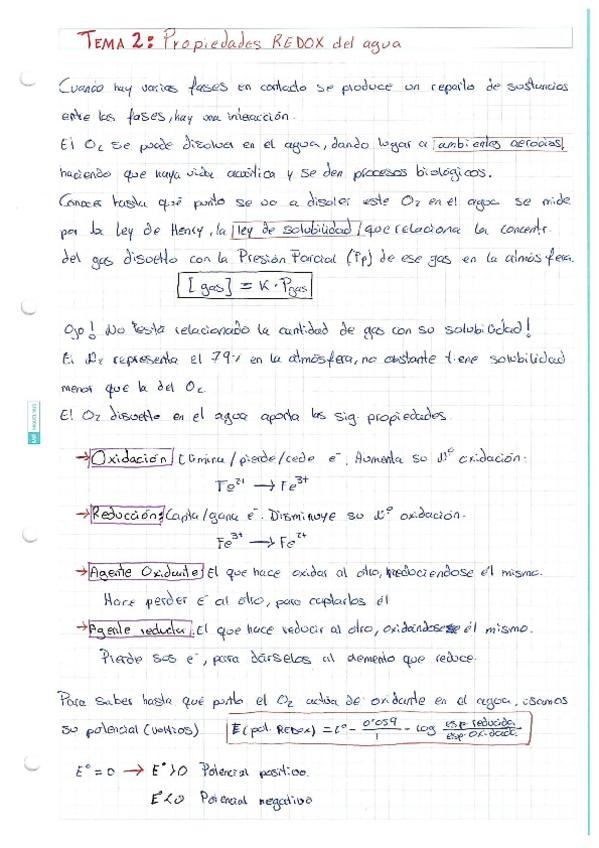 TEMA 2: Propiedades REDOX del agua
Cuando hay varias fases en contacto se produce un reparto de sustancias
entre las fases, hay una interacción.
El O2 se puede disolver en el agua, dando lugar a ambientes aerobios,
haciendo que haya vida acuática y se den procesos biológicos.
Conocer hasta qué punto se va a disolver este O2 en el agua se mide
por la Ley de Henry, la ley de solubilidad, que relaciona la concentr.
del gas disuelto con la Presión Parcial (Pp) de ese gas en la atmósfera.
[gas] = K · Pgas
Ojo! No está relacionado la cantidad de gas con su solubilidad!
El N2 representa el 79% en la atmósfera, no obstante tiene solubilidad
menor que la del O2
El O2 disuelto en el agua aporta las sig. propiedades
→ Oxidación: Elimina/pierde/cede e-. Aumenta su Nº oxidación.
Fe2+ → Fe3+
→ Reducción: Capta/gana e-. Disminuye su Nº oxidación.
Fe3+ → Fe2+
→ Agente Oxidante: El que hace oxidar al otro, reduciendose él mismo.
Hace perder e- al otro, para captarlos él
→ Agente reductor: El que hace reducir al otro, oxidándose él mismo.
Pierde sos e-, para dárselos al elemento que reduce.
Para saber hasta qué punto el O2 actúa de oxidante en el agua, usamos
su potencial (voltios) E(pot. REDOX) = Eº - 0'059/1 · log esp. reducida/esp. oxidada
Eº = 0 → Eº > 0 Potencial positivo.
Eº < 0 Potencial negativo